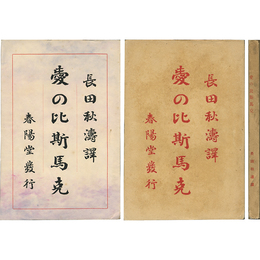 長田秋濤譯
愛の比斯馬克
春陽堂發行
長田秋濤譯
愛の比斯馬克
春陽堂發行